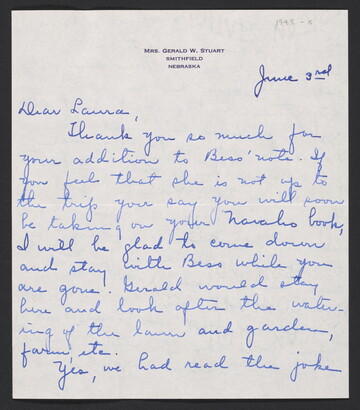 1945-8
MRS. GERALD W. STUART
SMITHFIELD
NEBRASKA
June 3rd
Dear Laura,
Thank you so much for
your addition to Bess' note. If
you feel that she is not up to
the trip your say you will soon
be taking on your Navaho book,
I will be glad to come down
and stay with Bess while you
are gone. Gerald would stay
here and look after the water-
ing of the lawn and garden,
farm, etc.
Yes, we had read the joke